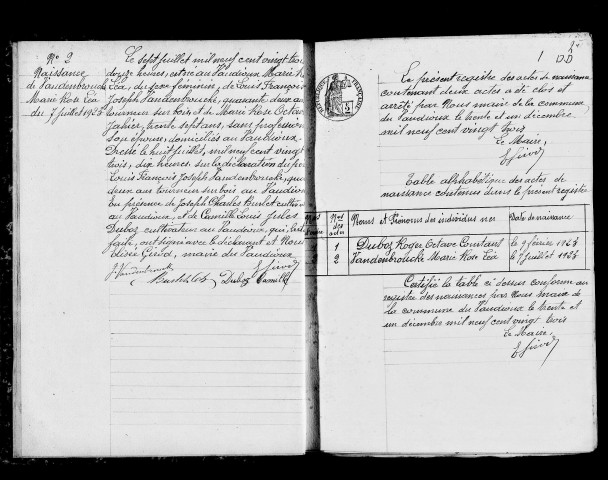 N° 2
Naissance
de Vandenbroucke
Marie Rose Léa
du 7 juillet 1923
Le sept juillet mil neuf cent vingt trois
douze heures, est née au Vaudioux Marie R
Léa, du sexe féminin, de Louis François
Joseph Vandenbroucke, quarante deux ans
tourneur sur bois et de Marie Rose Octavie
Janier, trente sept ans, sans profession
son épouse, domiciliés au Vaudioux.
Dressé le huit juillet, mil neuf cent vingt
trois, dix heures, sur la déclaration du père
Louis François Joseph Vandenbroucke, qua
deux ans tourneur sur bois au Vaudioux
en présence de Joseph Charles cultiv
au Vaudioux, et de Camille Louis Jules
Duboz cultivateur au Vaudioux, qui, lect
faite, ont signé avec le déclarant et Nous
Elisée Girod, maire du Vaudioux
J. Vandenbroucke
Duboz Camille
E Girod
1
Le présent registre des actes de naissance
contenant deux actes a été clos et
arrêté par Nous maire de la commune
du Vaudioux le trente et un décembre
mil neuf cent vingt trois
Le Maire,
E Girod
Table alphabétique des actes de
naissance contenus dans le présent registre
Nos des actes
Noms et Prénoms des individus nés
Date de naissance
1 Duboz Roger Octave Constant le 9 février 1923
2 Vandenbroucke Marie Rose Léa le 7 juillet 1923
Certifié la table ci dessus conforme au
registre des naissances par Nous maire de
la commune du Vaudioux le trente et
un décembre mil neuf cent vingt trois
Le Maire,
E Girod